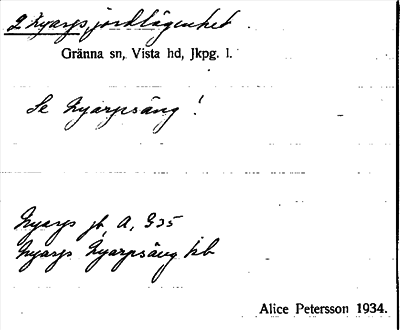 2 Nyarp, jordlägenhet
Gränna sn, Vista hd, Jkpg. l.
Se Nyarpsäng!
Nyarp jb, A, G35
Nyarp Nyarpsäng kb
Alice Petersson 1934.